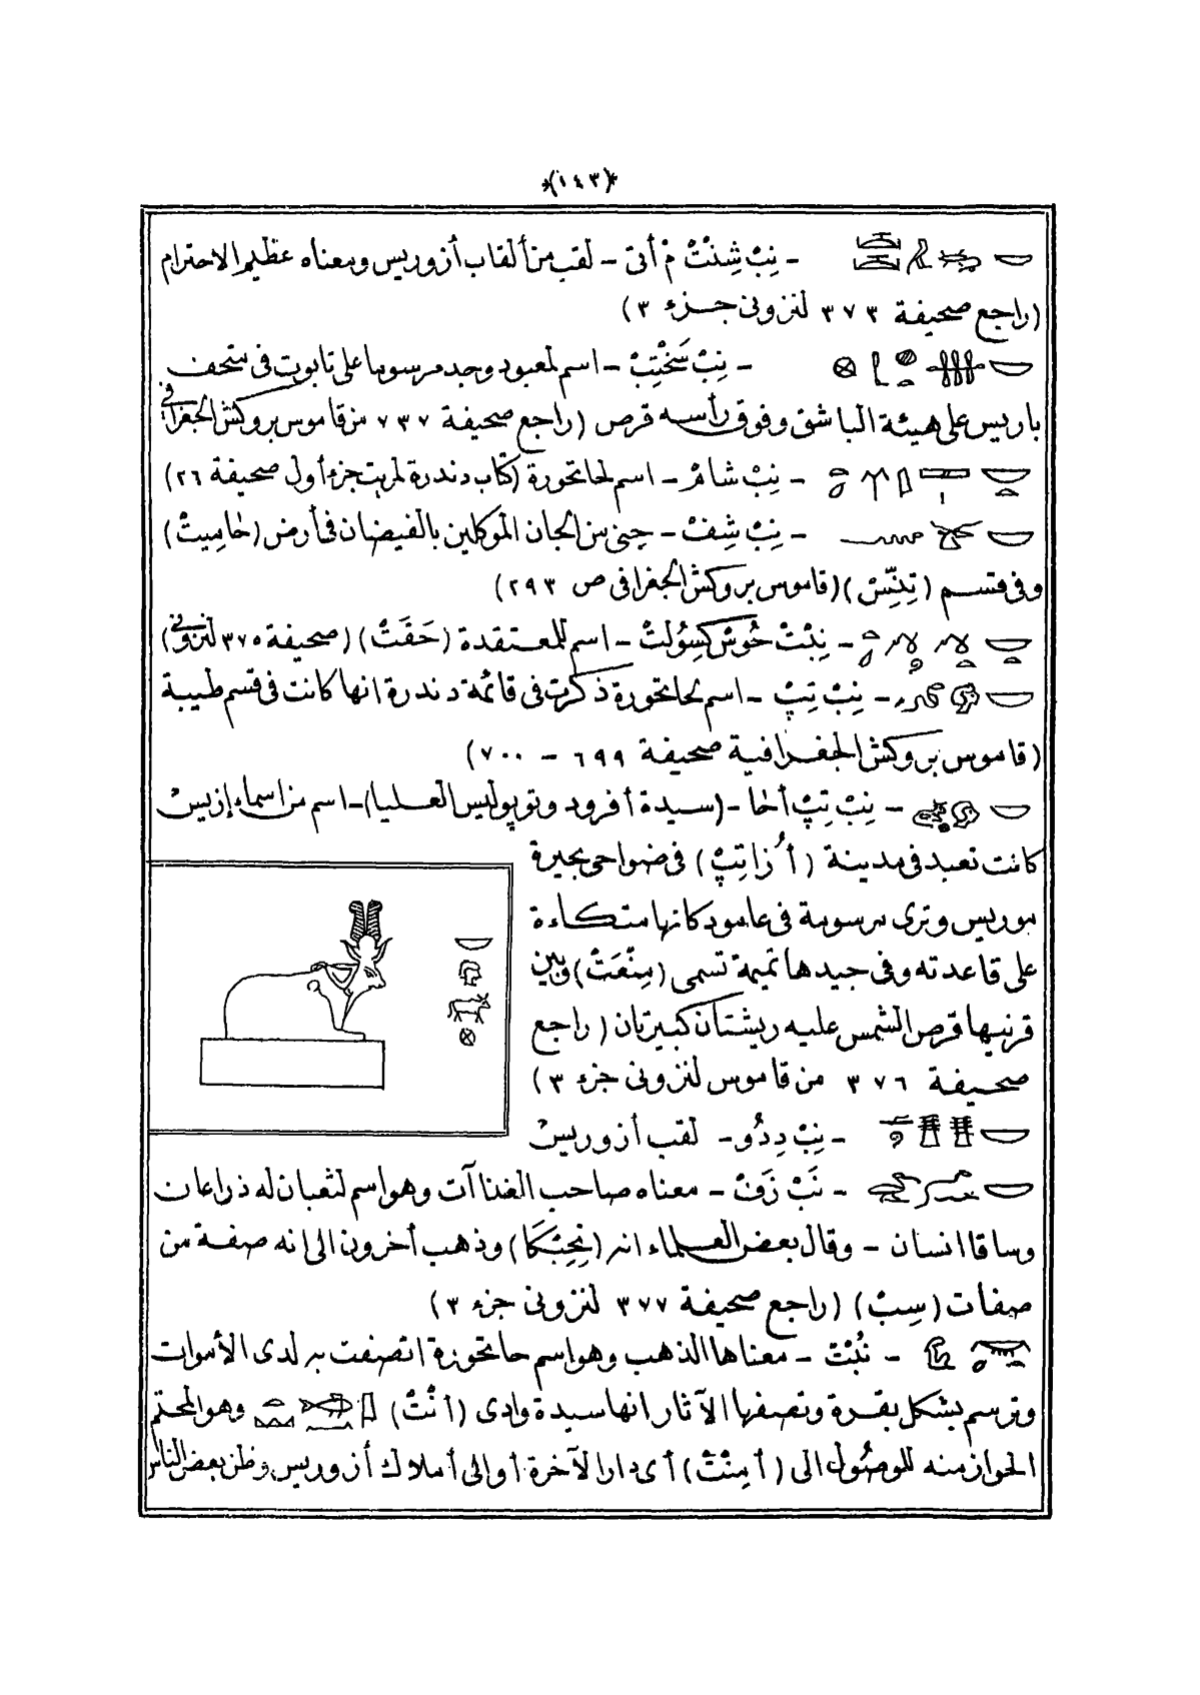 (١٤٣)
- نِبْ شِنْتْ مْ أتى - لقب من ألقاب أزوريس ومعناه عظيم الاحترام
(راجع صحيفة ٣٧٣ لنزونى جزء ٣)
- نِبْ سَخْتِبْ - اسم لمعبود وجد مرسوما على تابوت فى متحف
باريس على هيئة الباشق وفوق رأسه قرص (راجع صحيفة ٧٣٧ من قاموس بروكش الجغرافى
- نِبْ شامْ - اسم لحاتحورة (كتاب دندرة لمريت جزء أول صحيفة ٢٦)
- نِبْ شِفْ - جنى من الجان الموكلين بالفيضان فى أرض (حاميتْ)
وفى قسم (تِنِّسْ) (قاموس بروكش الجغرافى ص ٢٩٣)
- نِبْتْ حُوسْ كِسُولتْ - اسم للمعتقدة (حَقَتْ) (صحيفة ٣٧٥ لنزونى)
- نِبْ تِپْ - اسم لحاتحورة ذكرت فى قائمة دندرة انها كانت فى قسم طيبة
(قاموس بروكش الجغرافية صحيفة ٦٩٩ - ٧٠٠)
- نِبْ تِپْ أحا - (سيدة أفرود وتوپوليس العليا) - اسم من اسماء إزيس
كانت تعبد فى مدينة (أُزاتِپْ) فى ضواحى بحيرة
موريس وترى مرسومة فى عامود كانها متكاءة
على قاعدته وفى جيدها تميمة تسمى (مِنْعَتْ) وبين
قرنيها قرص الشمس عليه ريشتان كبيرتان (راجع
صحيفة ٣٧٦ من قاموس لنزونى جزء ٣)
- نِبْ دِدُو - لقب أزوريس
- نَبْ زَفْ - معناه صاحب الغذاآت وهو اسم لثعبان له ذراعان
وساقا انسان - وقال بعض العلماء انه (نِحِبْكَا) وذهب أخرون الى انه صفة من
صفات (سِبْ) (راجع صحيفة ٣٧٧ لنزونى جزء ٣)
- نُبْتْ - معناها الذهب وهو اسم حاتحورة اتصفت به لدى الأموات
وترسم بشكل بقرة وتصفها الآثار انها سيدة وادى (أنْتْ) وهو المحتم
الجواز منه للوصول الى (أمِنْتْ) أى دار الآخرة أو الى أملاك أزوريس وظن بعض الناس